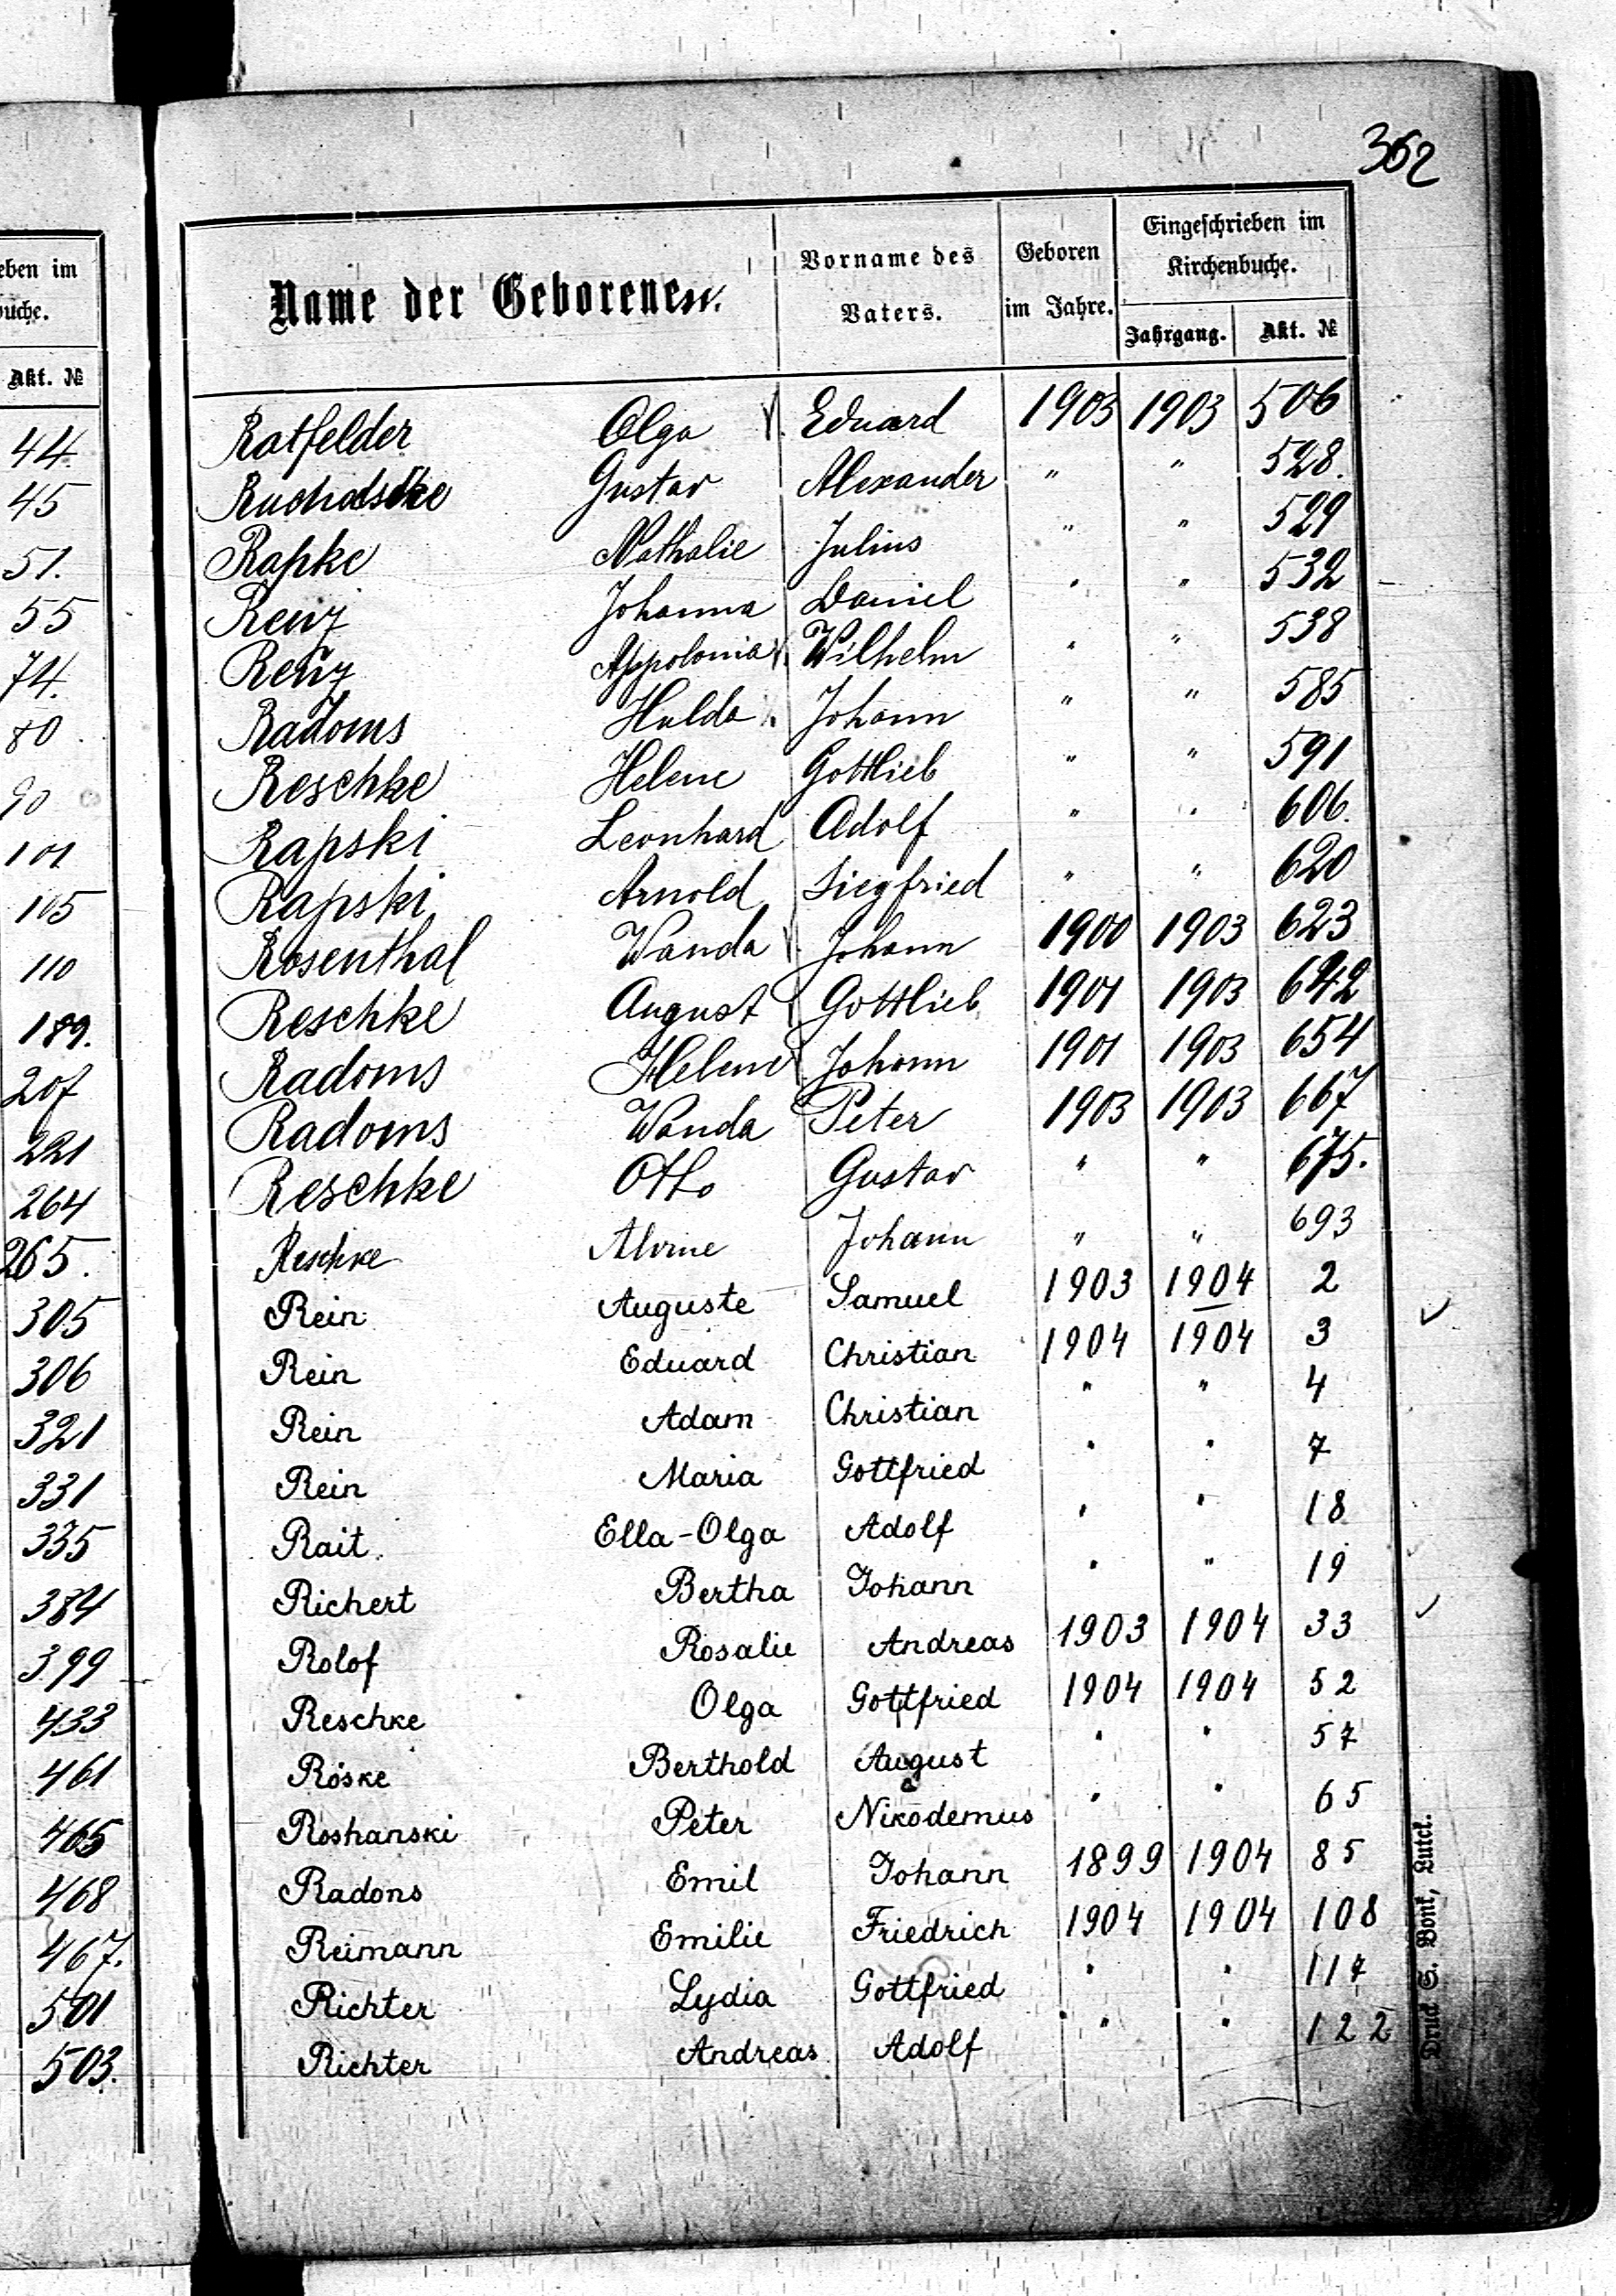 362
eben im
buche.
Akt. №
44.
45
51.
55
74.
80
90
101
105
110
189.
207
221
264
265.
305
306
321
331
335
384
399
433
461
465
468
467.
501
503.
Name der Geborenen. Vorname des Vaters. Geboren im Jahre. Eingeschrieben im Kirchenbuche.
Jahrgang. Akt. №
Ratfelder Olga Eduard 1903 1903 506
Gustav Alexander " " 528.
Rapke Nathalie Julius " " 529
Renz Johanna Daniel " " 532
Renz Appolonia Wilhelm " " 538
Radoms Hulda Johann " " 585
Reschke Helene Gottlieb " " 591
Rapski Leonhard Adolf " " 606.
Rapski Arnold Siegfried " " 620
Rosenthal Wanda Johann 1900 1903 623
Reschke August Gottlieb 1901 1903 642
Radoms Helene Johann 1901 1903 654
Radoms Wanda Peter 1903 1903 667
Reschke Otto Gustav " " 675.
Reschke Alvine Johann " " 693
Rein Auguste Samuel 1903 1904 2
Rein Eduard Christian 1904 1904 3
Rein Adam Christian " " 4
Rein Maria Gottfried " " 7
Rait Ella-Olga Adolf " " 18
Richert Bertha Johann " " 19
Rolof Rosalie Andreas 1903 1904 33
Reschke Olga Gottfried 1904 1904 52
Röske Berthold August " " 57
Roshanski Peter Nikodemus " " 65
Radons Emil Johann 1899 1904 85
Reimann Emilie Friedrich 1904 1904 108
Richter Lydia Gottfried " " 117
Richter Andreas Adolf " " 122
Druck S. Bonk, Lutck.